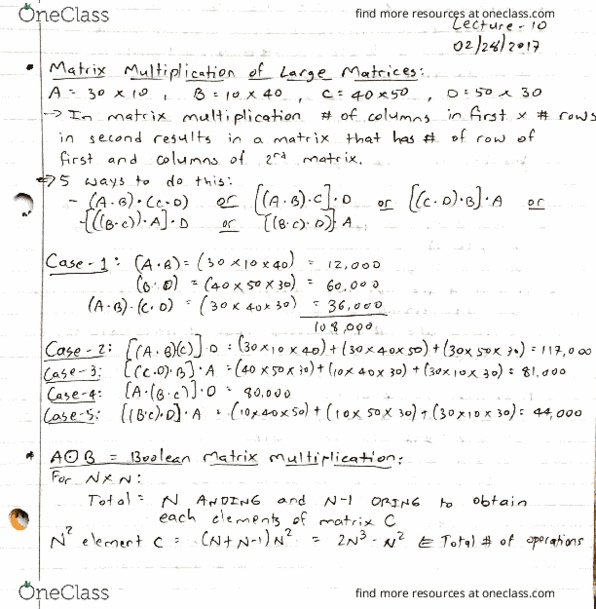 OneClass
find more resources at oneclass.com
Lecture - 10
02/28/2017
• Matrix Multiplication of Large Matrices:
A = 30 x 10 , B = 10 x 40 , C = 40 x 50 , D = 50 x 30
→ In matrix multiplication # of columns in first x # rows
in second results in a matrix that has # of row of
first and columns of 2nd matrix.
⇒ 5 ways to do this:
- (A·B)·(C·D) or [(A·B)·C]·D or [(C·D)·B]·A or
-[((B·C))·A]·D or [(B·C)·D]·A
Case-1: (A·B) = (30 x 10 x 40) = 12,000
= (40 x 50 x 30) = 60,000
(A·B)·(C·D) = (30 x 40 x 30) = 36,000
108,000
Case-2: [(A·B)(C)]·D = (30x10x40)+(30x40x50)+(30x50x30) = 117,000
Case-3: [(C·D)·B]·A = (40x50x30)+(10x40x30)+(30x10x30) = 81,000
Case-4: [A·(B·C)]·D = 80,000
Case-5: [(B·C)·D]·A = (10x40x50)+(10x50x30)+(30x10x30) = 44,000
* A⊙B = Boolean Matrix multiplication:
For NxN:
Total = N ANDING and N-1 ORING to obtain
each elements of matrix C
N² element C = (N+N-1)N² = 2N³-N² ∈ Total # of operations
OneClass
find more resources at oneclass.com